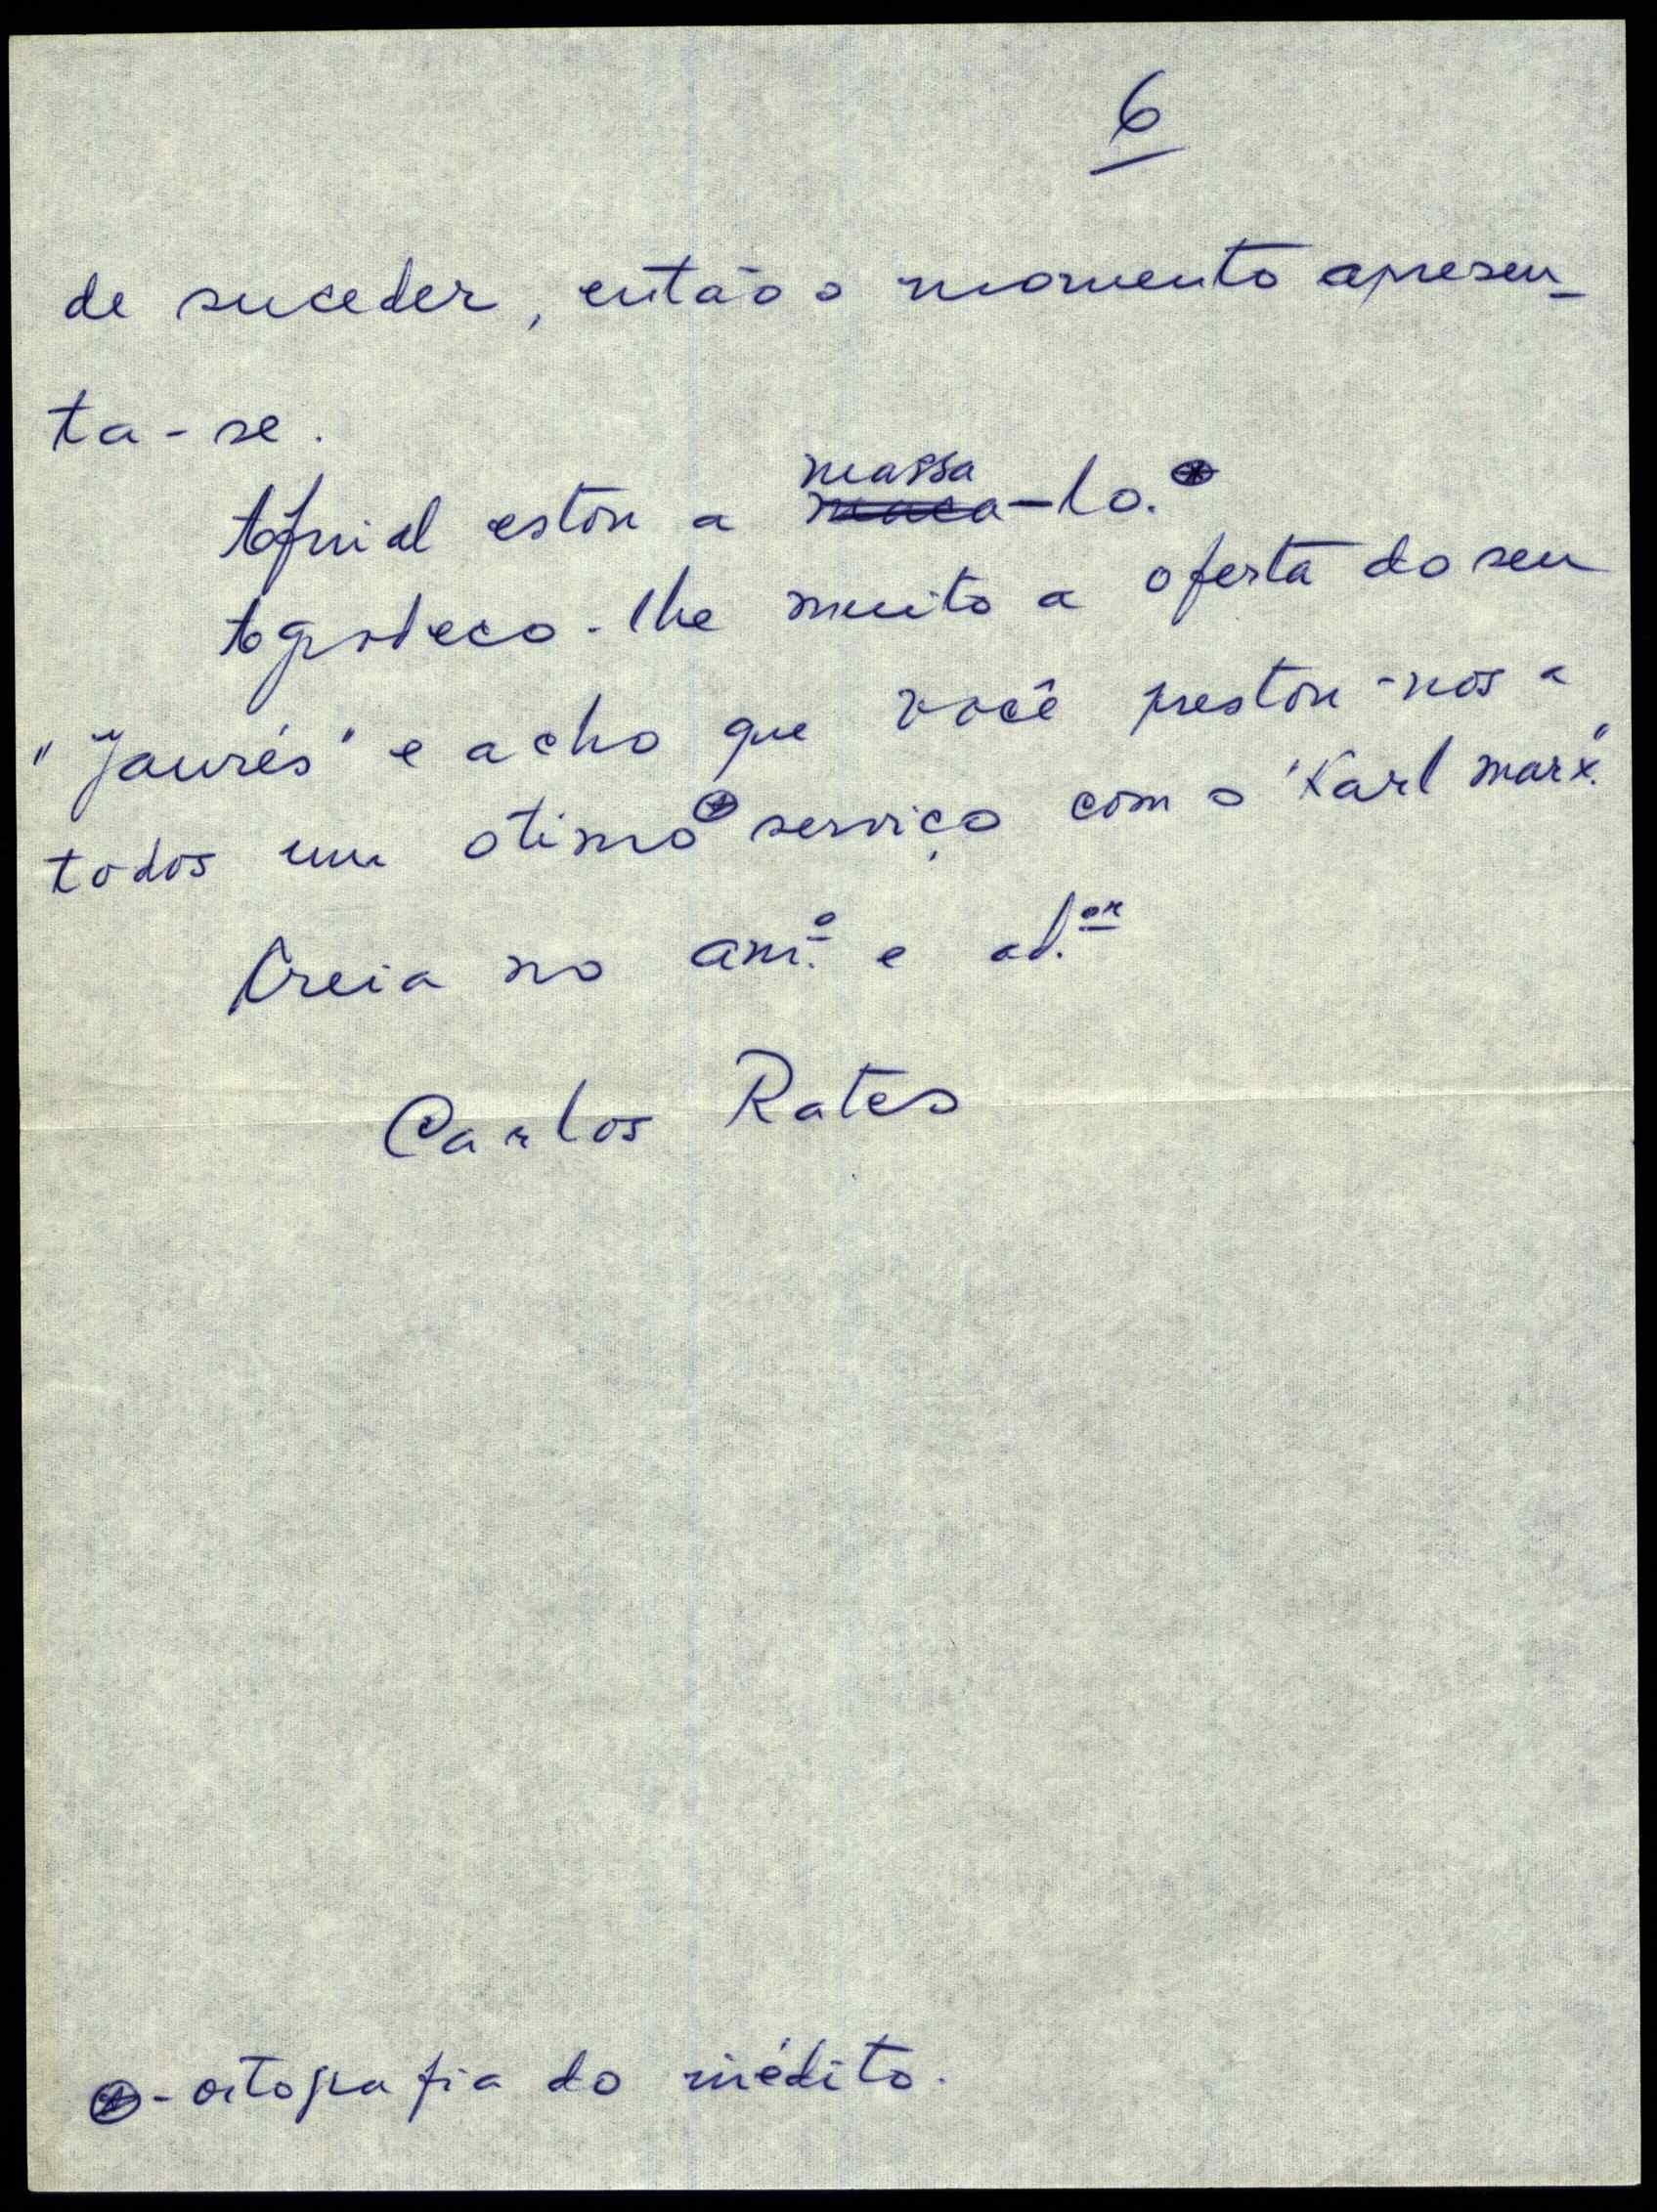 6
de suceder, então o momento apresen-
ta-se.
Afinal estou a massa
maça-lo. *
Agradeço-lhe muito a oferta do seu
"Jaurés" e acho que você prestou-nos a
todos um otimo * serviço com o "Karl Marx."
Creia no am.º e ad.or
Carlos Rates
* - ortografia do inédito.